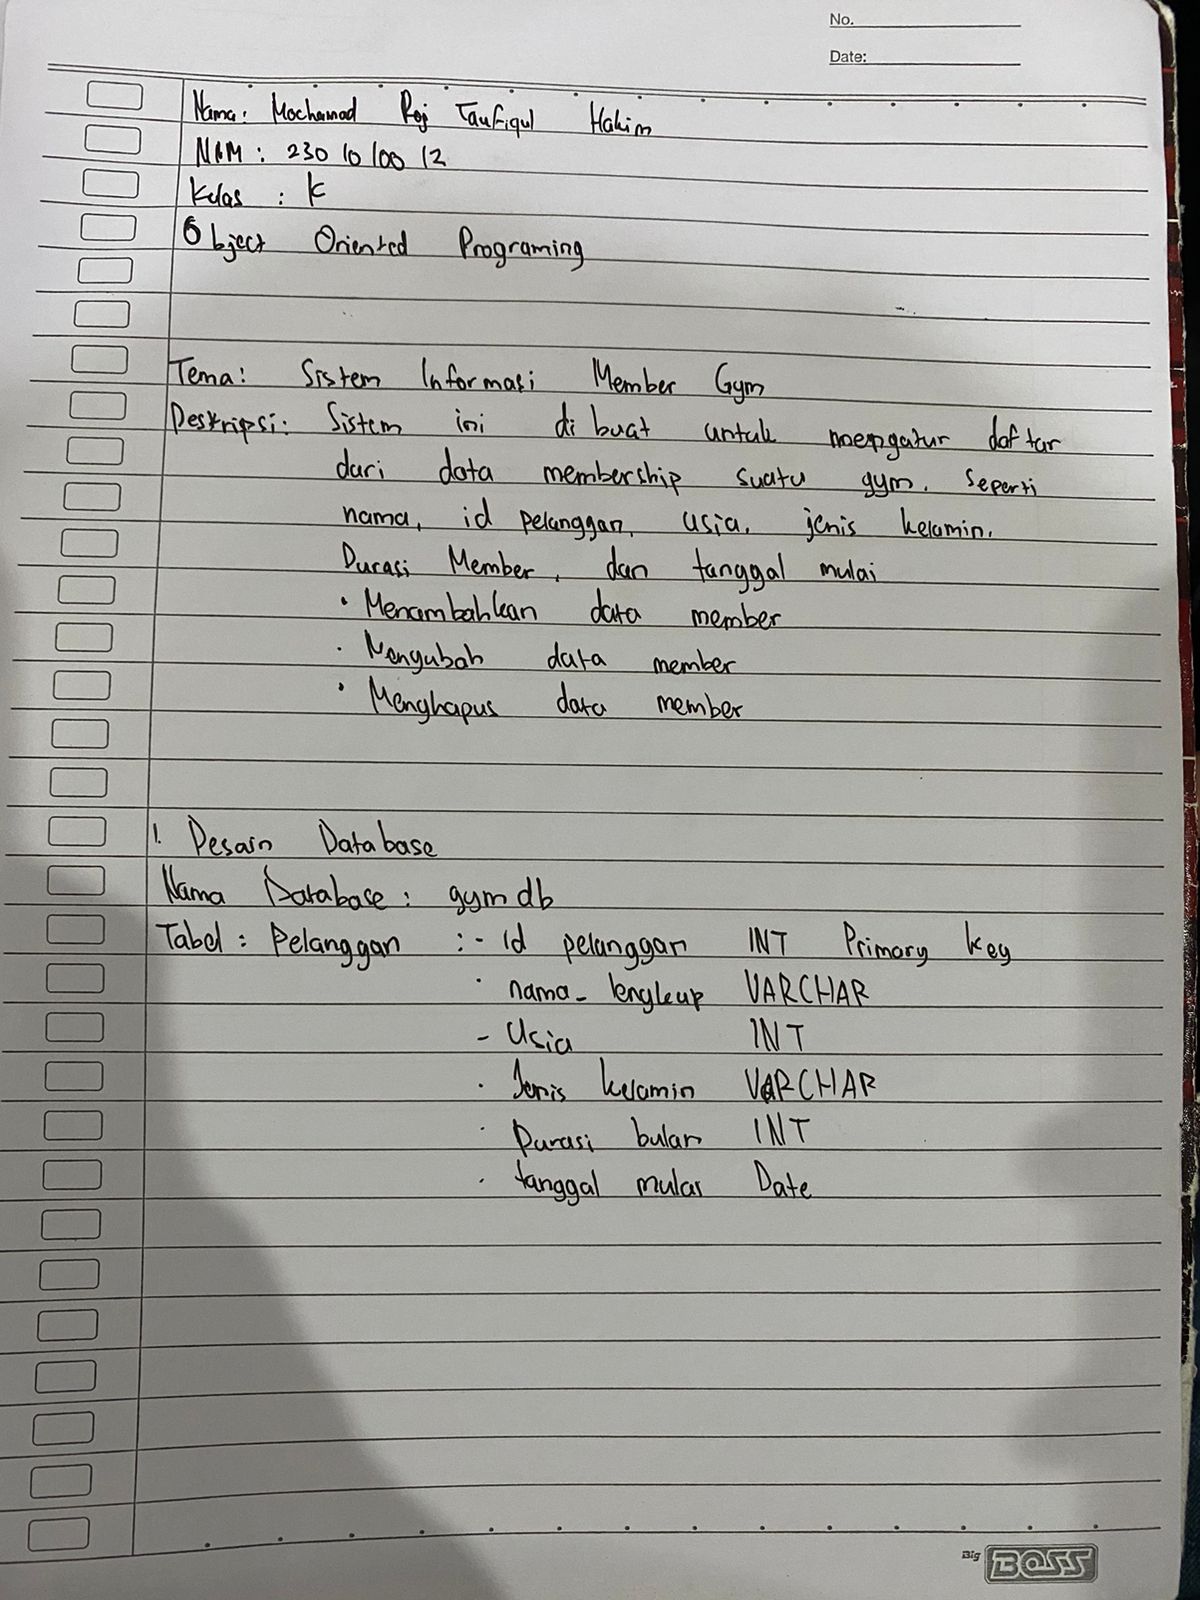 No.
Date:
Nama: Mochamad Roj Taufiqul Hakim
NIM : 230 10 100 12
Kelas : K
Object Oriented Programing
Tema: Sistem Informasi Member Gym
Deskripsi: Sistem ini di buat untuk mengatur daftar
dari data membership suatu gym. Seperti
nama, id pelanggan, usia, jenis kelamin.
Durasi Member, dan tanggal mulai
• Menambahkan data member
• Mengubah data member
• Menghapus data member
1. Desain Database
Nama Database : gym db
Tabel : Pelanggan : - id pelanggan INT Primary key
- nama_lengkap VARCHAR
- Usia INT
- Jenis kelamin VARCHAR
- Durasi bulan INT
- tanggal mulai Date
Big BOSS